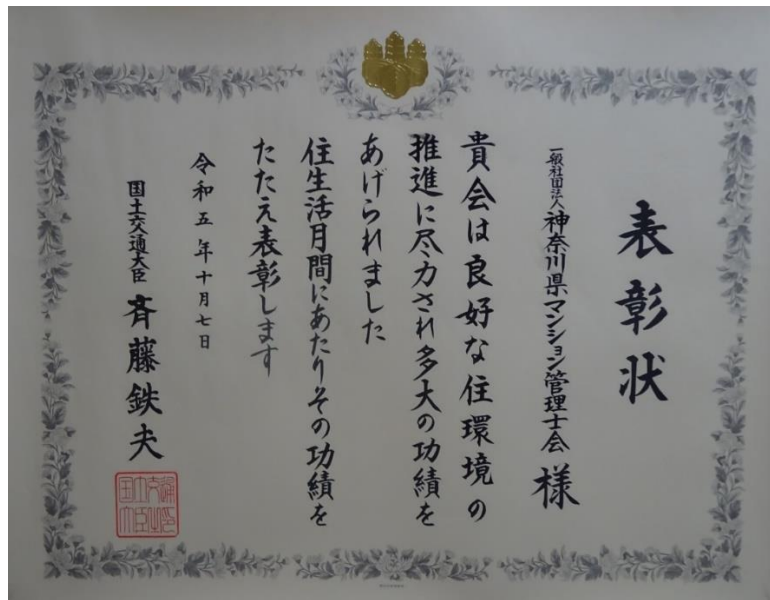 表彰状
一般社団法人神奈川県マンション管理士会 様
貴会は良好な住環境の
推進に尽力され多大の功績を
あげられました
住生活月間にあたりその功績を
たたえ表彰します
令和五年十月七日
国土交通大臣 斉藤鉄夫